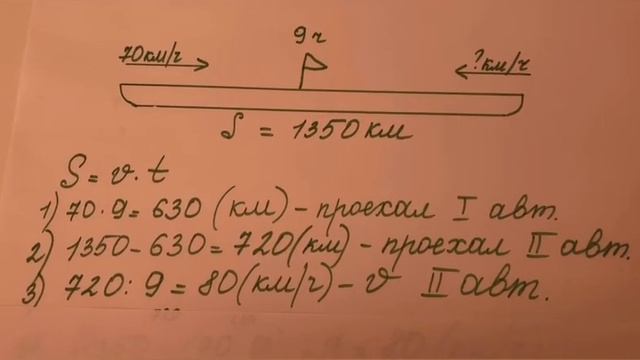 9 ч
70км/ч
?км/ч
S = 1350 км
S = v · t
1) 70 · 9 = 630 (км) – проехал I авт.
2) 1350 – 630 = 720 (км) – проехал II авт.
3) 720 : 9 = 80 (км/ч) – v II авт.